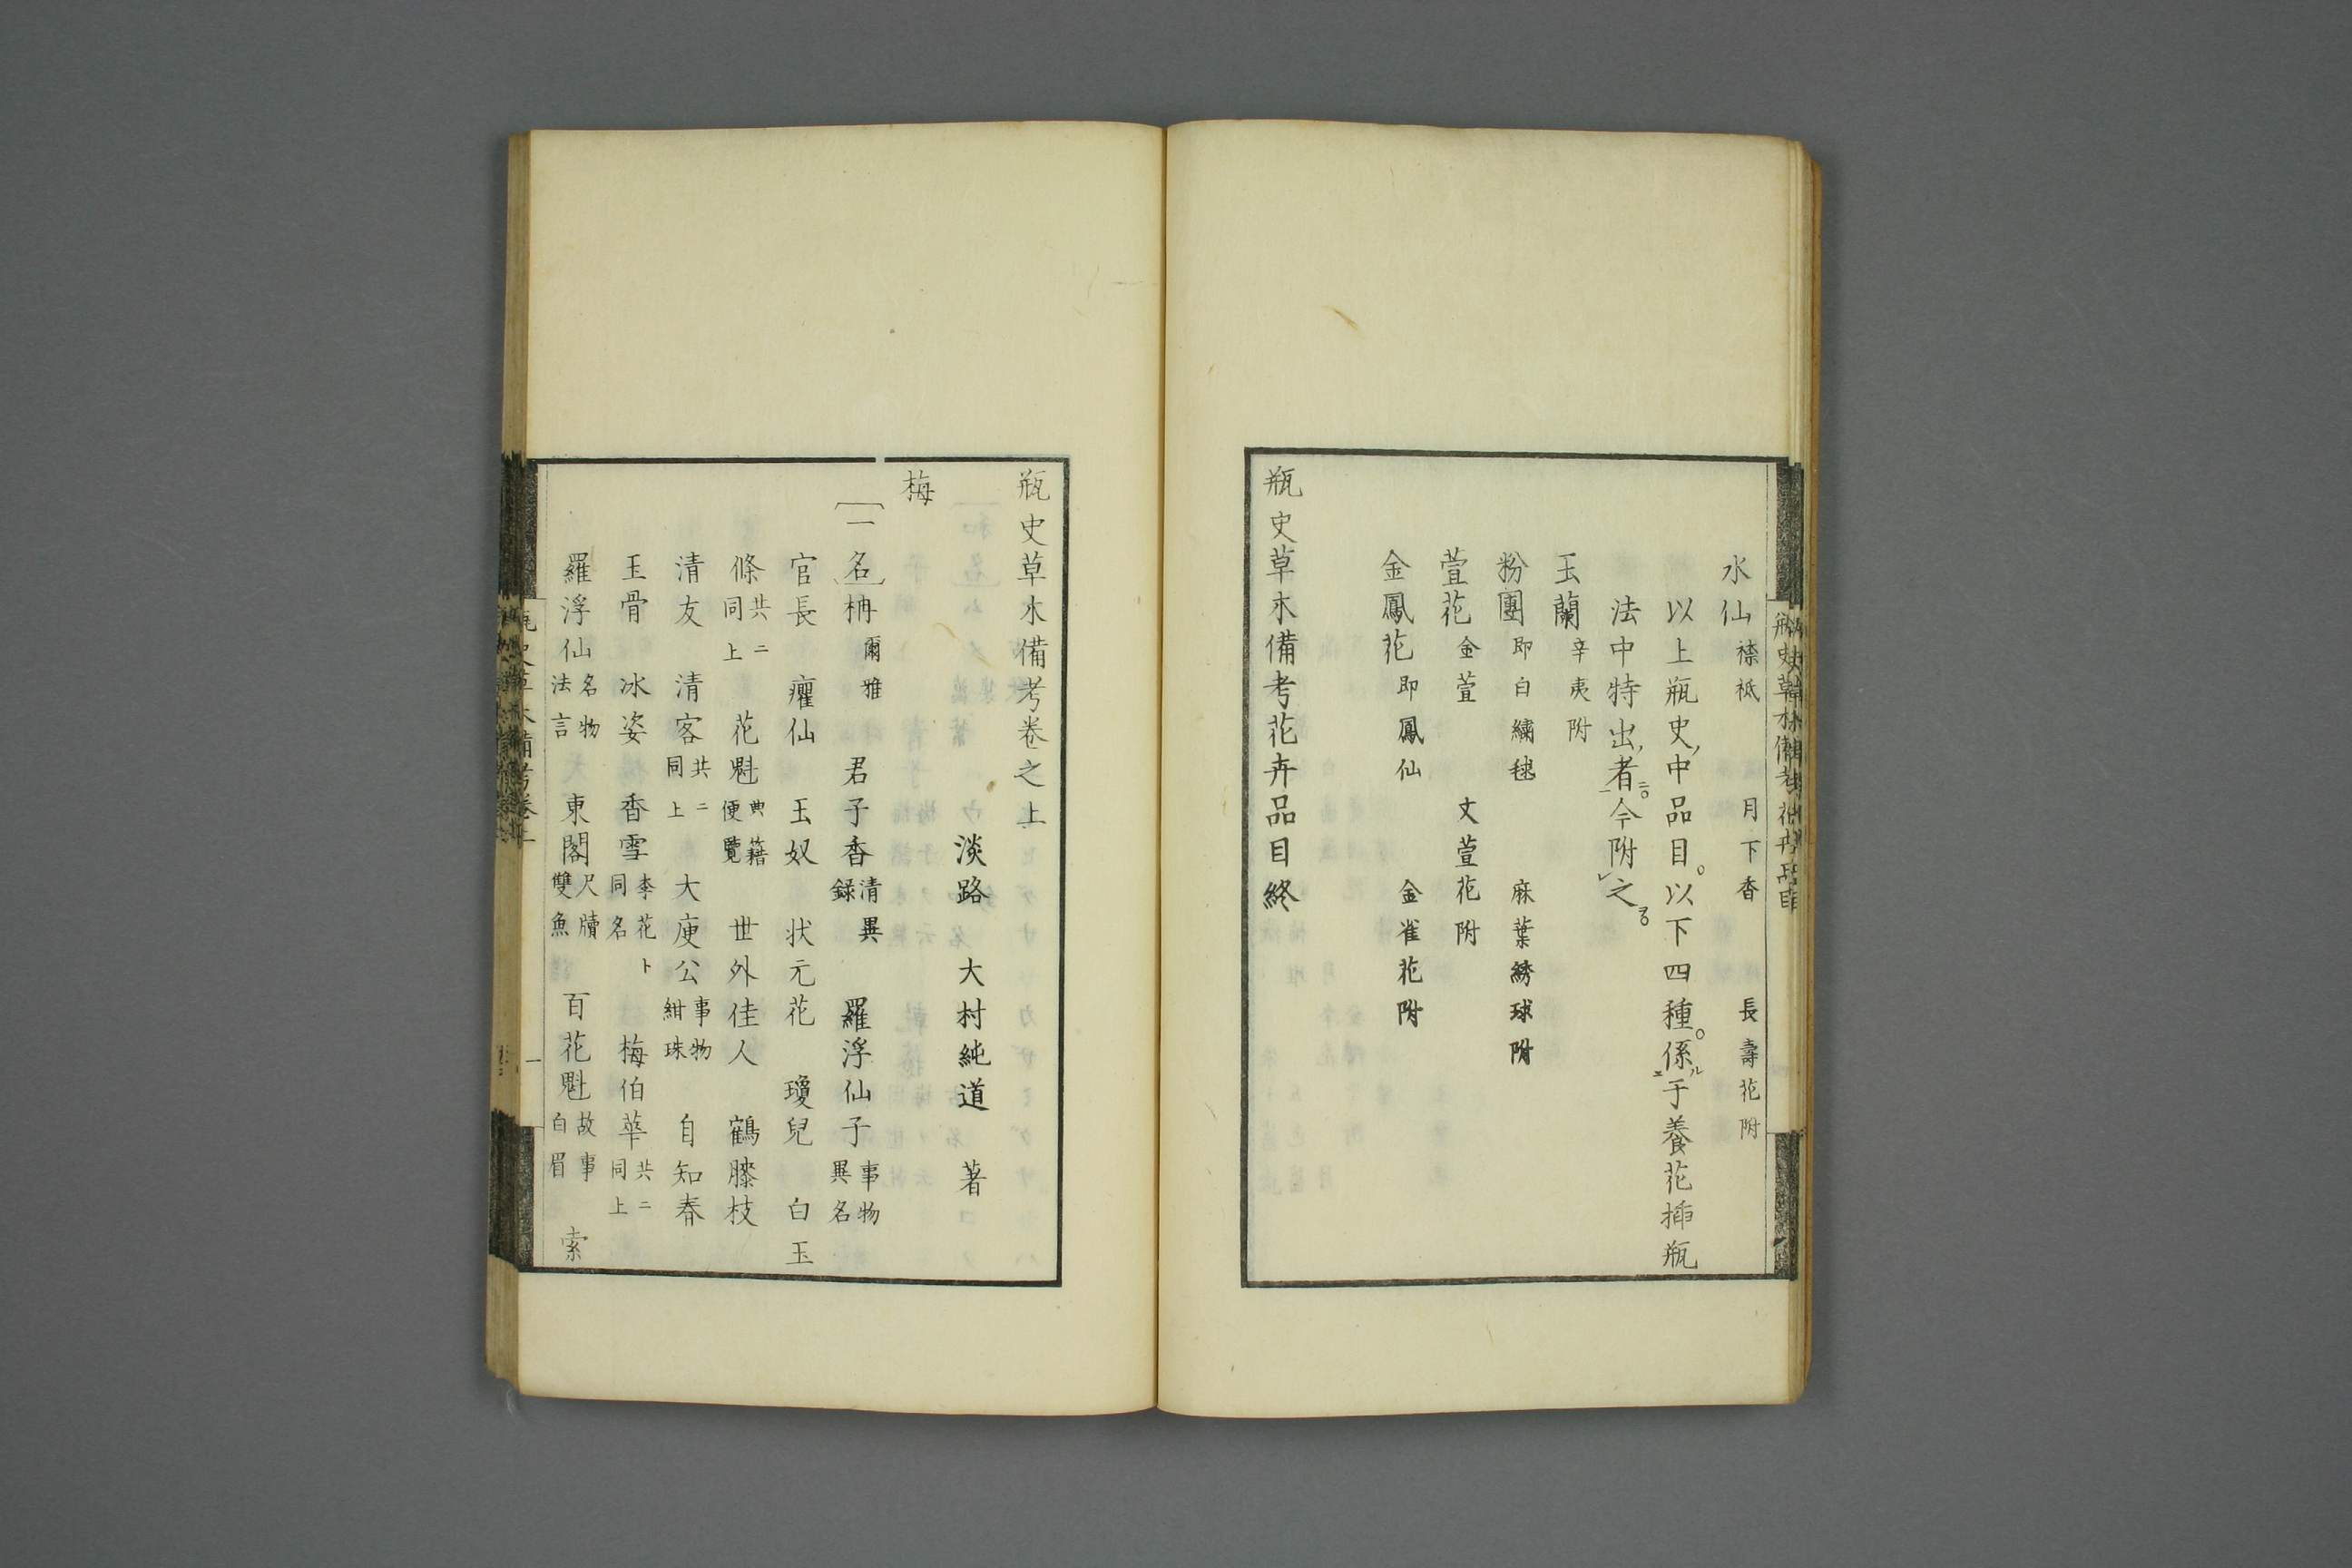 水仙 襟祗 月下香 長壽花附
以上瓶史中品目。以下四種。係ル于養花揷瓶
法中特出者ニ。今附之ヲ
玉蘭 辛夷附
粉團 即白繍毬 麻葉綉球附
萱花 金萱 文萱花附
金鳳花 即鳳仙 金雀花附
瓶史草木備考花卉品目終
瓶史草木備考卷之上
淡路 大村純道 著
梅
〔一名〕 柟 爾雅 君子香 清異錄 羅浮仙子 事物異名
官長 癯仙 玉奴 状元花 瓊兒 白玉
條 共二同上 花魁 典籍便覽 世外佳人 鶴膝枝
清友 清客 共二同上 大庾公 事物紺珠 自知春
玉骨 冰姿 香雪 李花ト同名 梅伯華 共二同上
羅浮仙 名物法言 東閣 尺牘雙魚 百花魁 故事白眉 索